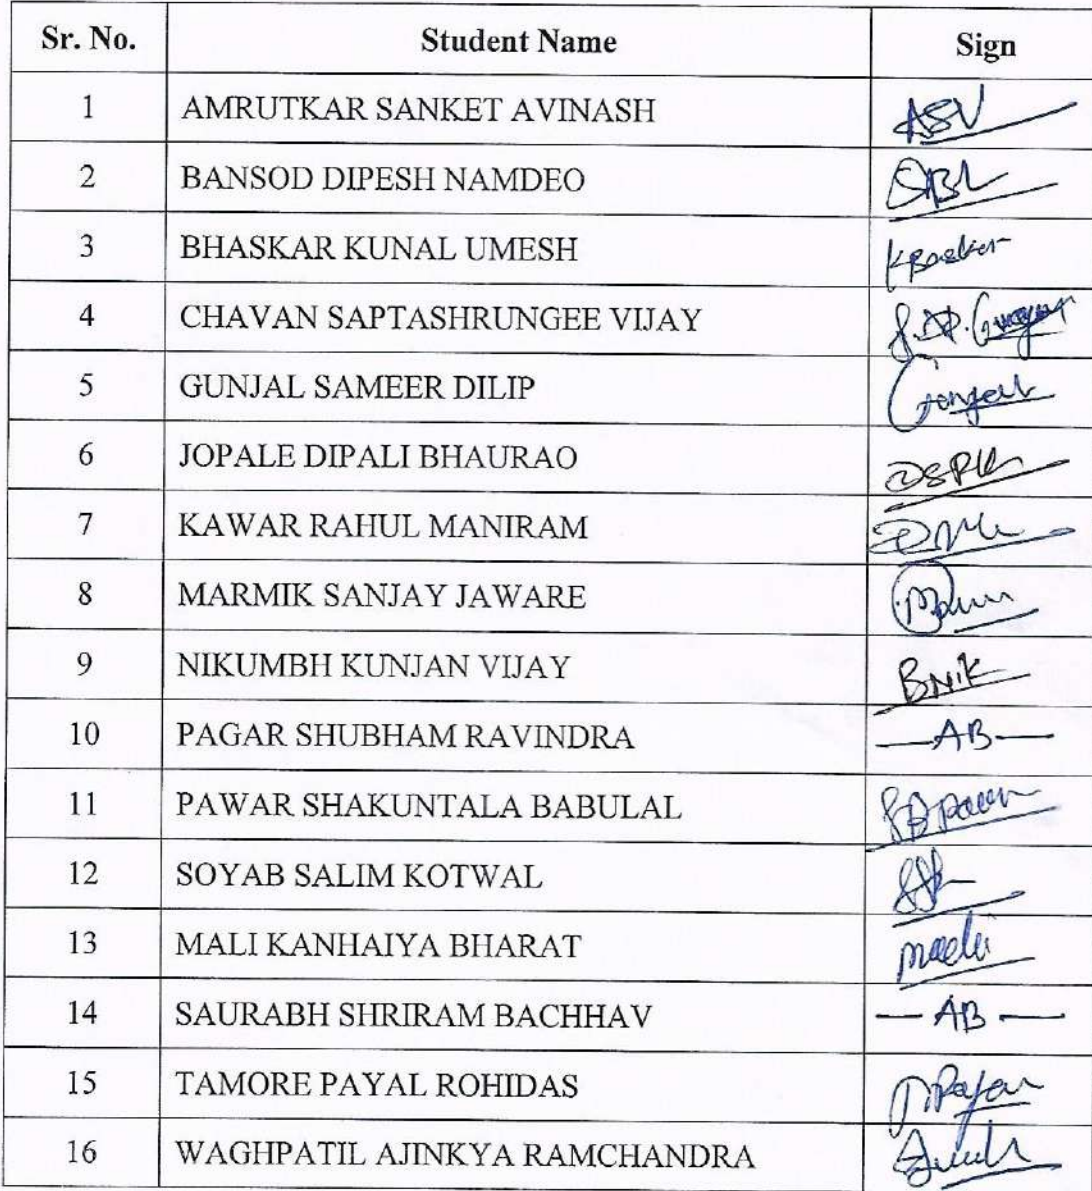 Sr. No. Student Name Sign
1 AMRUTKAR SANKET AVINASH ASV
2 BANSOD DIPESH NAMDEO
3 BHASKAR KUNAL UMESH
4 CHAVAN SAPTASHRUNGEE VIJAY
5 GUNJAL SAMEER DILIP
6 JOPALE DIPALI BHAURAO
7 KAWAR RAHUL MANIRAM
8 MARMIK SANJAY JAWARE
9 NIKUMBH KUNJAN VIJAY BNik
10 PAGAR SHUBHAM RAVINDRA —AB—
11 PAWAR SHAKUNTALA BABULAL
12 SOYAB SALIM KOTWAL
13 MALI KANHAIYA BHARAT
14 SAURABH SHRIRAM BACHHAV —AB—
15 TAMORE PAYAL ROHIDAS
16 WAGHPATIL AJINKYA RAMCHANDRA